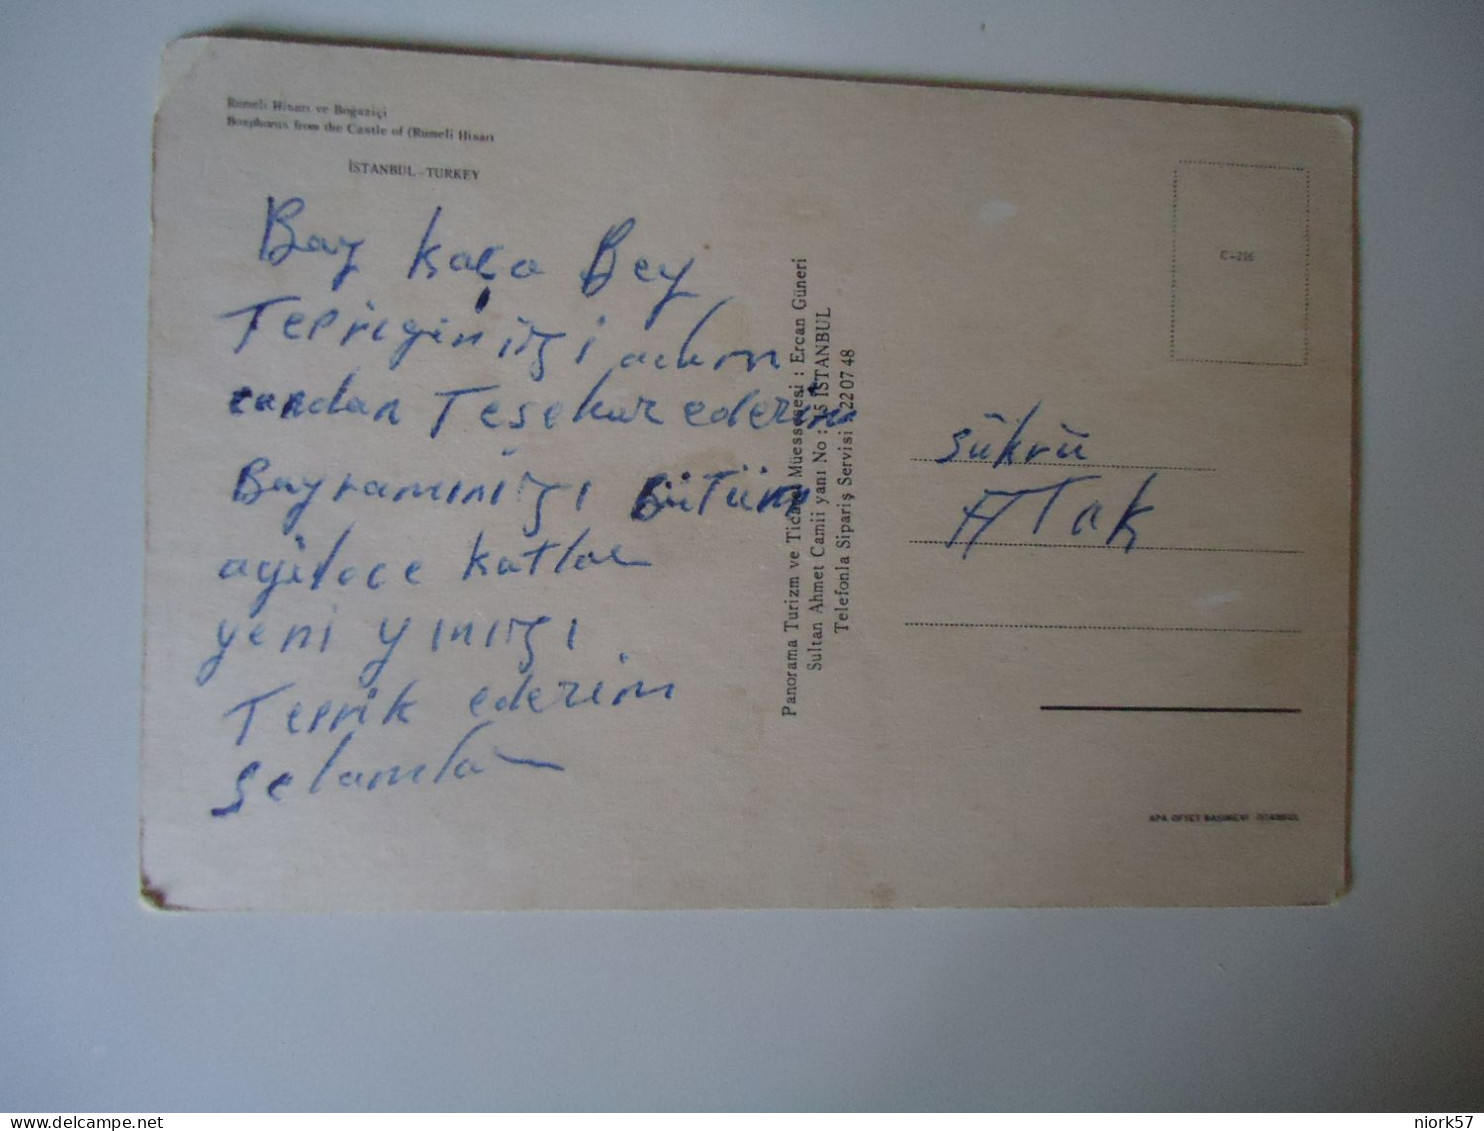 Rumeli Hisarı ve Boğaziçi
Bosphorus from the Castle of (Rumeli Hisarı
İSTANBUL - TURKEY
Bay kaça Bey
Tepriginizi adım
candan Teşekur ederim
Bayramınızı Bütün
ağilece kutlar
yeni yınızı
Teprik ederim
Selamlar
Panorama Turizm ve Ticaret Müessesesi : Ercan Güneri
Sultan Ahmet Camii yanı No : 15 İSTANBUL
Telefonla Sipariş Servisi : 22 07 48
C-216
Sükrü
ATak
APA OFSET BASIMEVİ İSTANBUL
niork57